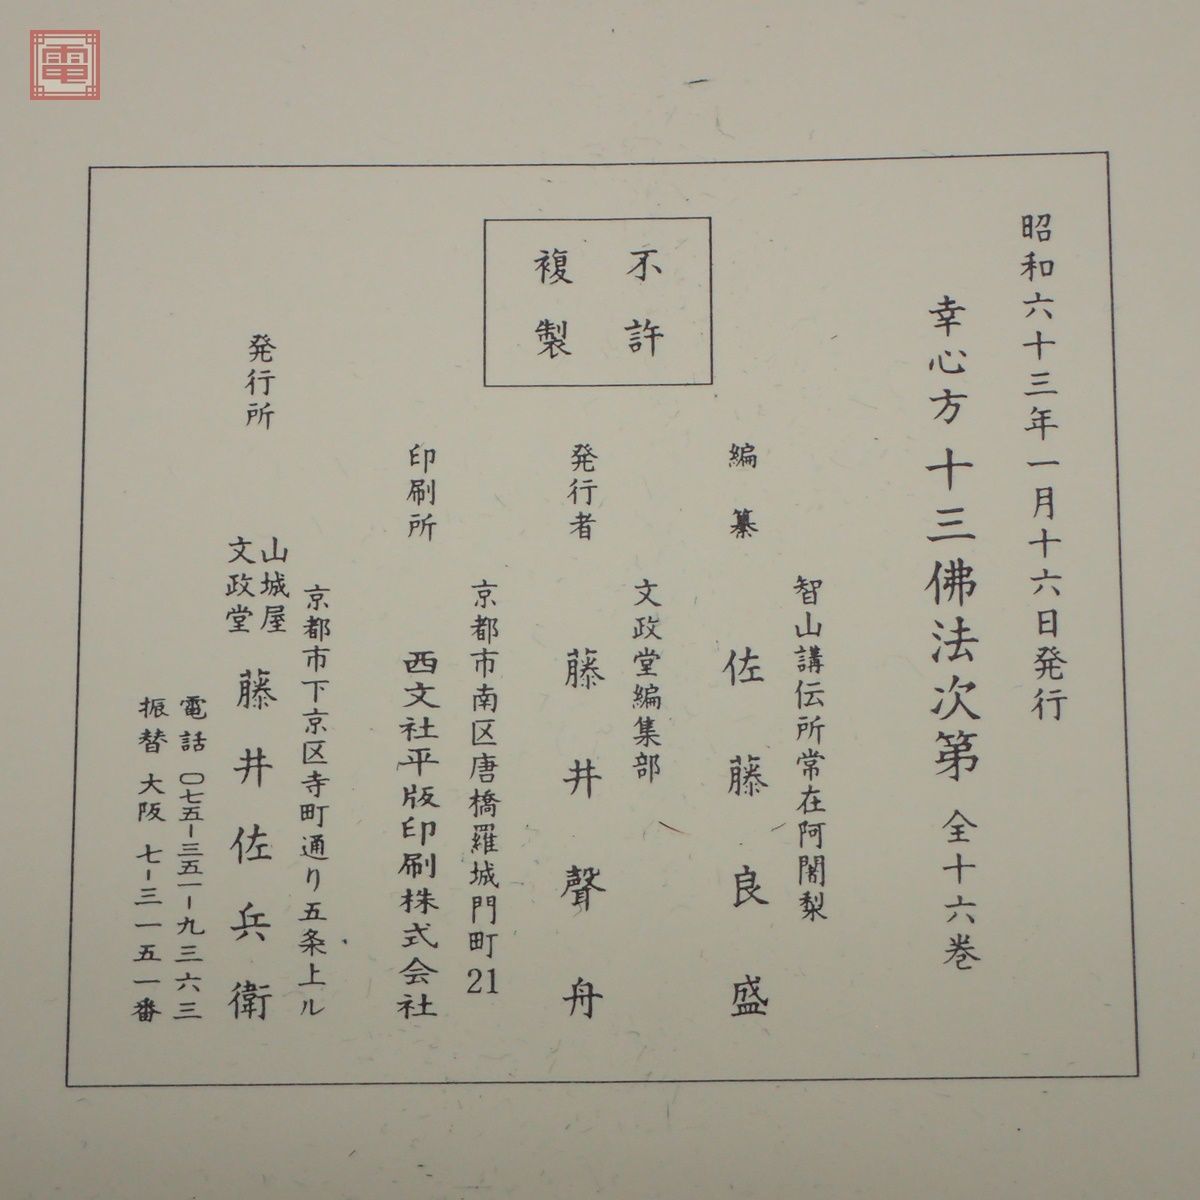 電
昭和六十三年一月十六日発行
幸心方 十三佛法次第 全十六巻
智山講伝所常在阿闍梨
編纂 佐藤良盛
不許
複製
文政堂編集部
発行者 藤井聲舟
京都市南区唐橋羅城門町21
印刷所 西文社平版印刷株式会社
京都市下京区寺町通り五条上ル
発行所 山城屋
文政堂 藤井佐兵衛
電話 〇七五-三五一-九三六三
振替 大阪 七-三一五一番